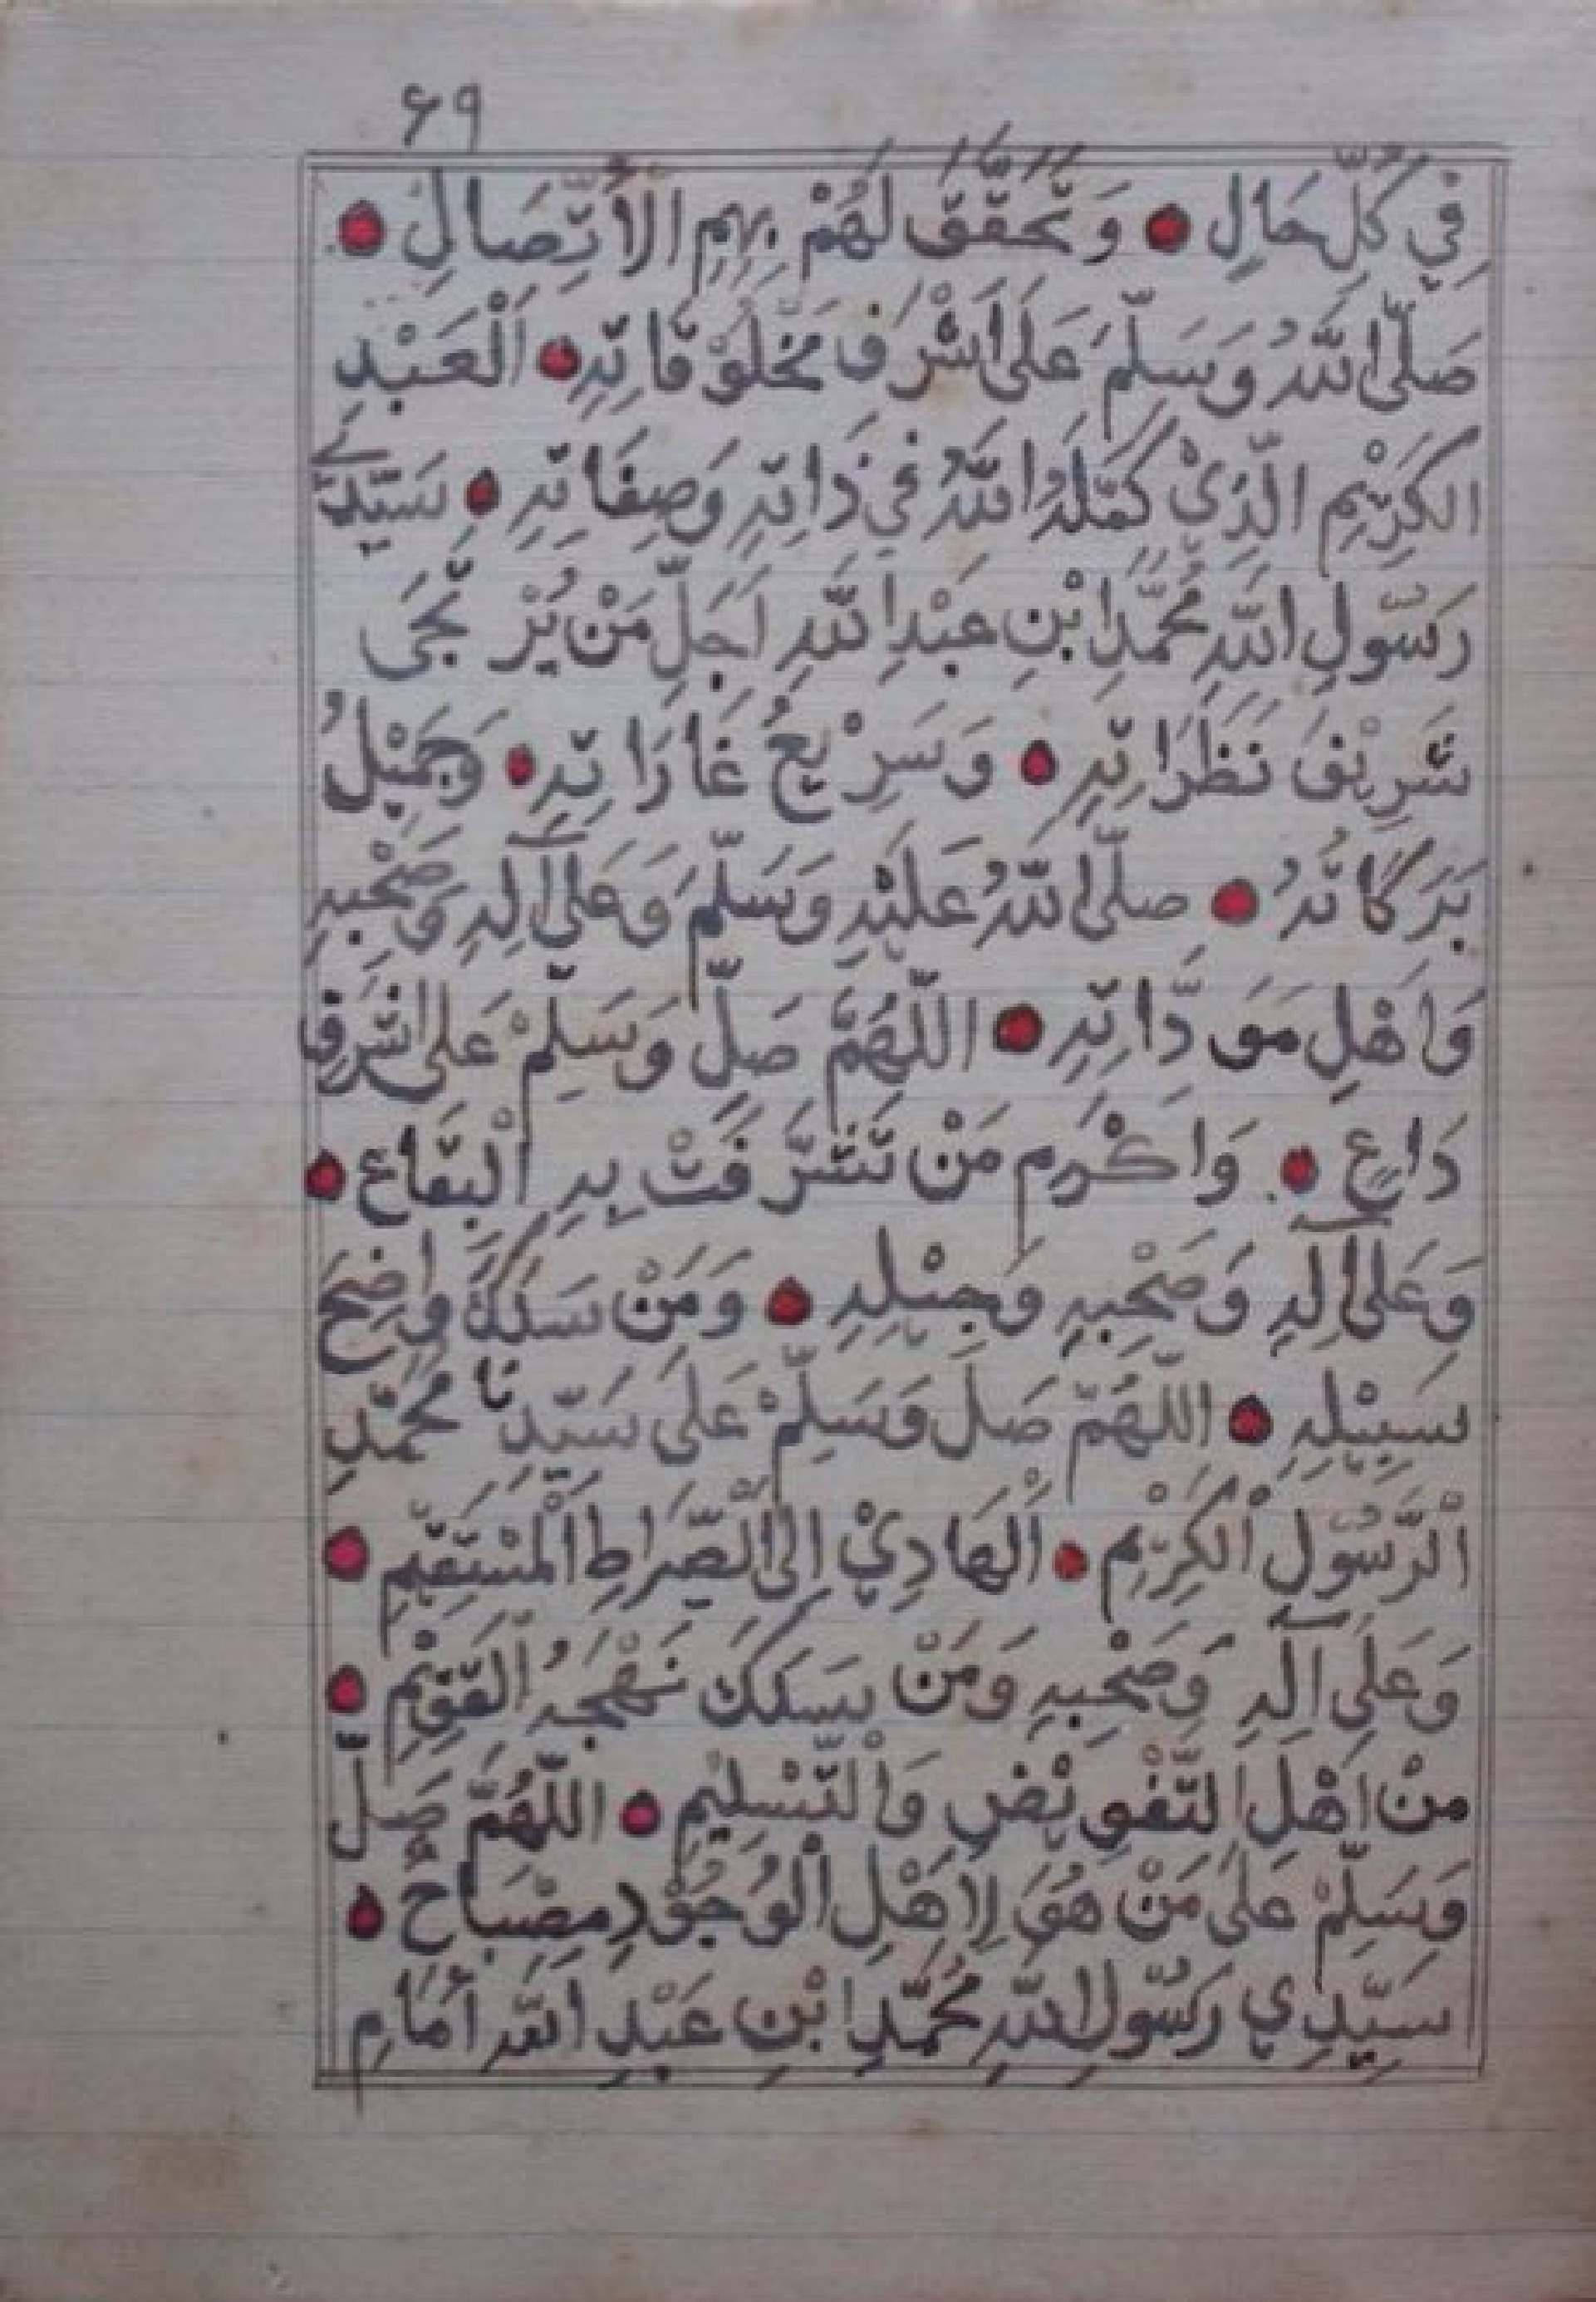 ۶۹
فِي كُلِّ حَالٍ ۞ وَتَحَقَّقَ لَهُمْ بِهِمِ الْاِتِّصَالِ ۞
صَلَّى اللّٰهُ وَسَلَّمَ عَلَى اَشْرَفِ مَخْلُوْقَاتِهِ ۞ اَلْعَبْدِ
الكَرِيْمِ الَّذِيْ كَمَّلَهُ اللّٰهُ فِي ذَاتِهِ وَصِفَاتِهِ ۞ سَيِّدِيْ
رَسُوْلِ اللّٰهِ مُحَمَّدِ ابْنِ عَبْدِ اللّٰهِ اَجَلِّ مَنْ يُرْتَجَى
شَرِيْفَ نَظَرَاتِهِ ۞ وَسَرِيْعُ غَارَاتِهِ ۞ وَجَمِيْلُ
بَرَكَاتُهُ ۞ صلَّى اللّٰهُ عَلَيْهِ وَسَلَّمَ وَعَلَى آلِهِ وَصَحْبِهِ
وَاَهْلِ مَوَدَّاتِهِ ۞ اللّٰهُمَّ صَلِّ وَسَلِّمْ عَلَى اَشْرَفِ
دَاعٍ ۞ وَاَكْرَمِ مَنْ تَشَرَّفَتْ بِهِ الْبِقَاع ۞
وَعَلَى آلِهِ وَصَحْبِهِ وَجِيْلِهِ ۞ وَمَنْ سَلَكَ وَاضِحَ
سَبِيْلِهِ ۞ اللّٰهُمَّ صَلِّ وَسَلِّمْ عَلَى سَيِّدِنَا مُحَمَّدِ
اَلرَّسُوْلِ الْكَرِيْمِ ۞ اَلْهَادِيْ اِلَى الصِّرَاطِ الْمُسْتَقِيْمِ ۞
وَعَلَى آلِهِ وَصَحْبِهِ وَمَنْ سَلَكَ نَهْجَهُ الْقَوِيْمِ ۞
مِنْ اَهْلِ التَّفْوِيْضِ وَالْتَّسْلِيْمِ ۞ اللّٰهُمَّ صَلِّ
وَسَلِّمْ عَلَى مَنْ هُوَ لِاَهْلِ الْوُجُوْدِ مِصْبَاحٌ ۞
سَيِّدِي رَسُوْلِ اللّٰهِ مُحَمَّدِ ابْنِ عَبْدِ اللّٰهِ اَمَامِ